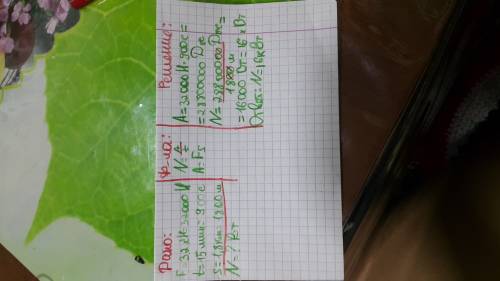 Рано:
F=32 кН=32000 Н
t=15 мин=900 с
S=1,8 км=1800 м
N=? кВт
Ф-ла:
N=A/t
A=Fs
Решение:
A=32000 Н·900 с=
=28800000 Дж
N=28800000 Дж=
1800 м
=16000 Вт=16 кВт
Ответ: N=16кВт